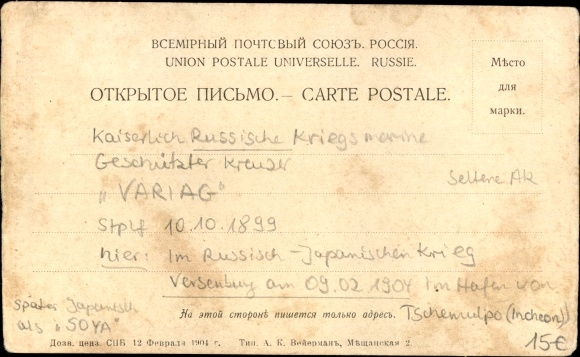 ВСЕМІРНЫЙ ПОЧТОВЫЙ СОЮЗЪ. РОССІЯ.
UNION POSTALE UNIVERSELLE. RUSSIE.
Мѣсто
для
марки.
ОТКРЫТОЕ ПИСЬМО.— CARTE POSTALE.
Kaiserlich Russische Kriegsmarine
Geschützter Kreuzer
„VARIAG“
Seltene AK
Stplf 10.10.1899
hier: Im Russisch-Japanischen Krieg
Versenkung am 09.02 1904 im Hafen von
Tschemulpo (Incheon)
später Japanisch
als „SOYA“
15€
На этой сторонѣ пишется только адресъ.
Дозв. ценз. СПБ 12 Февраля 1904 г. Тип. А. К. Вейерманъ, Мѣщанская 2.